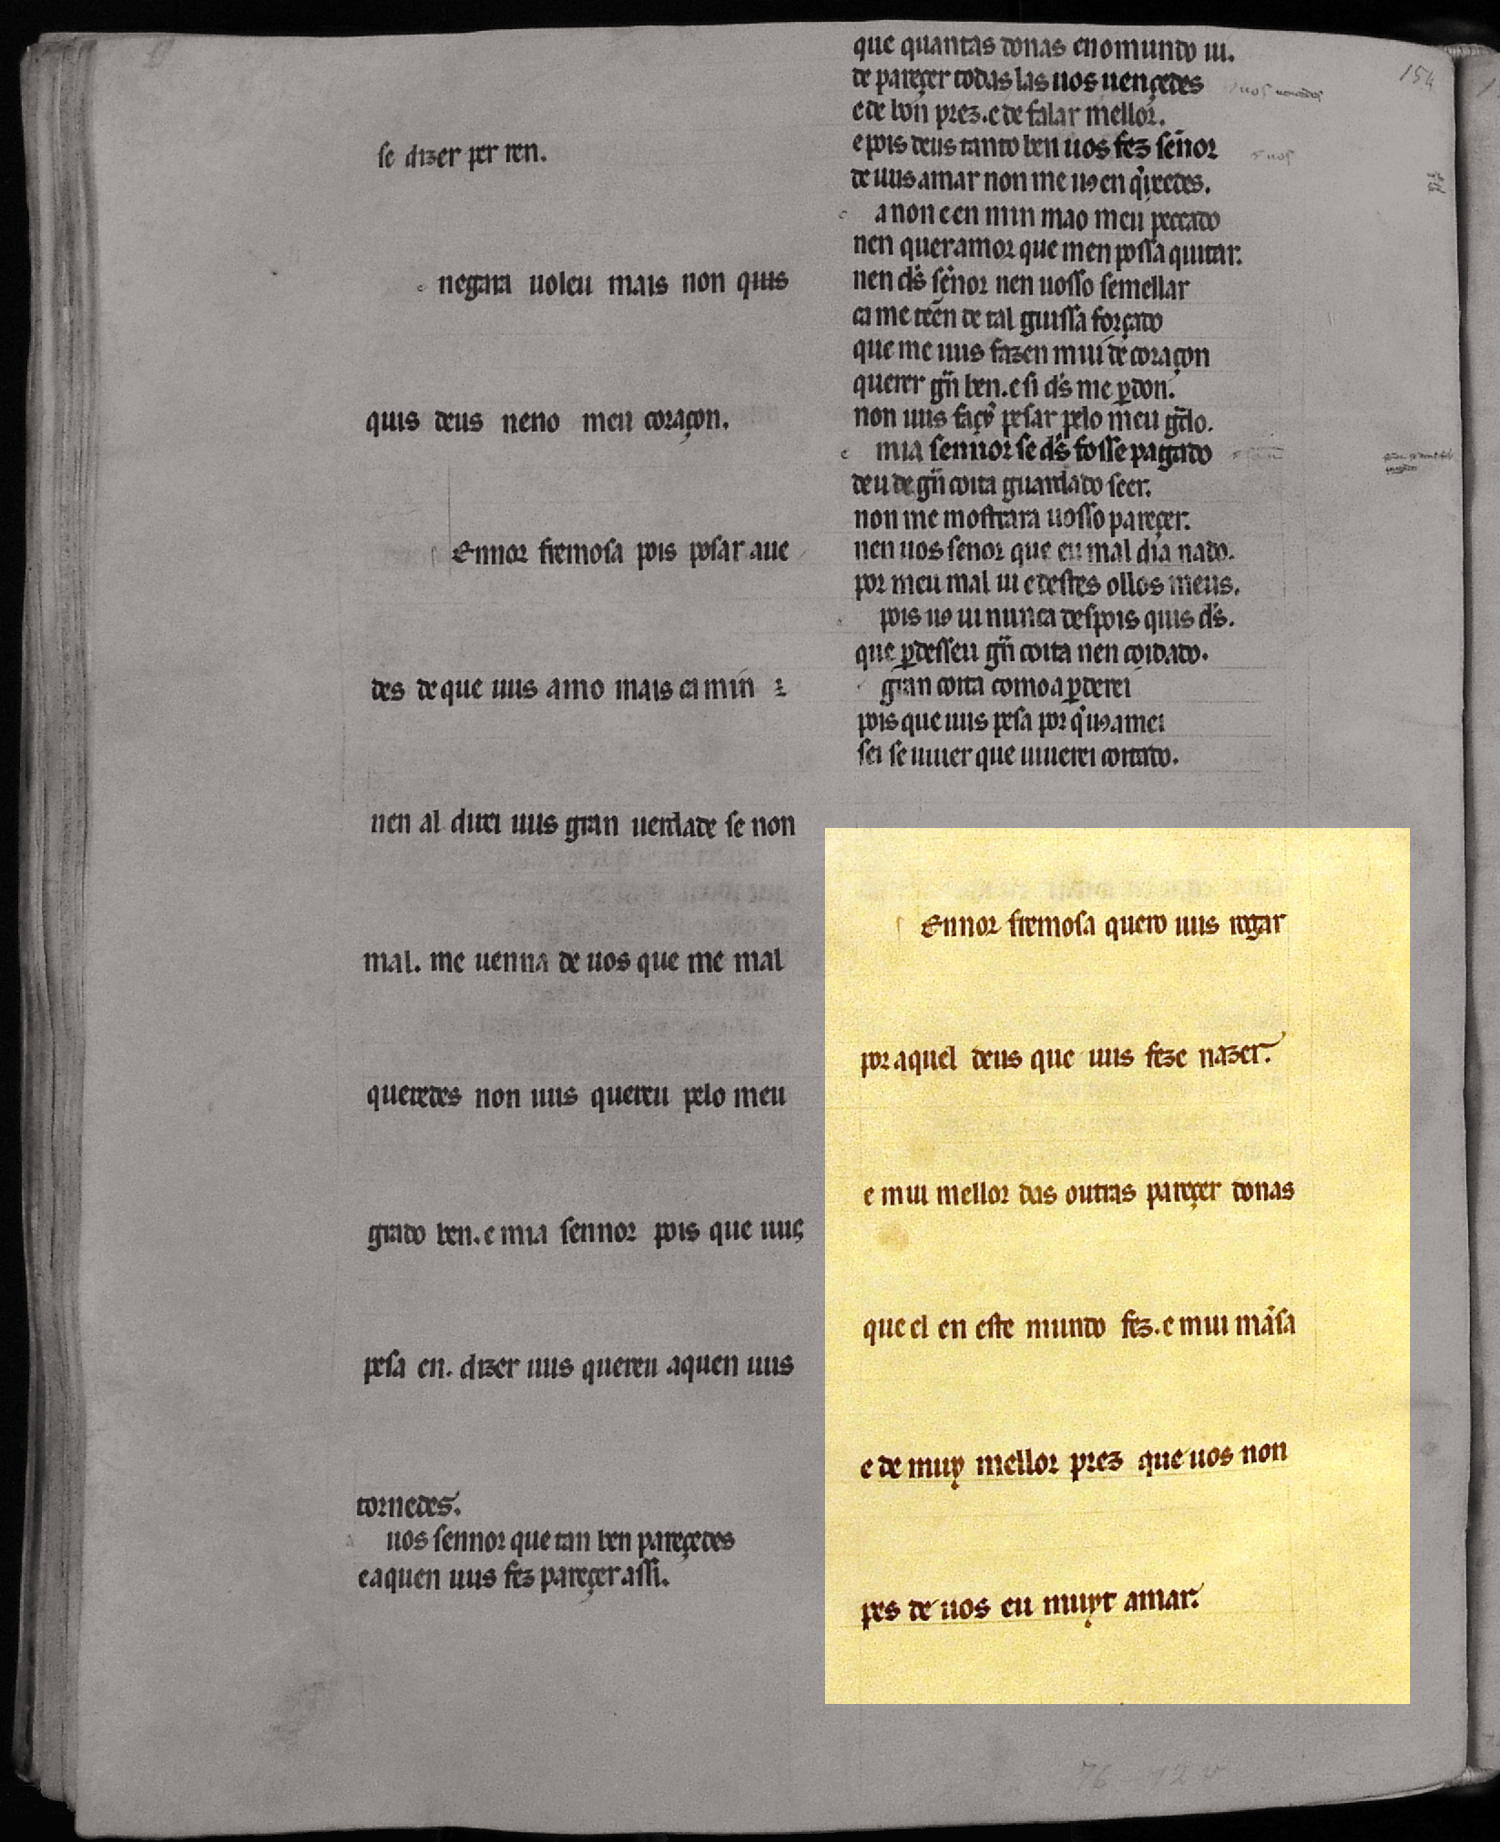 se dizer per ren.
negara uoleu mais non quis
quis deus neno meu coraçon.
Ennor fremosa pois pesar aue
des de que uus amo mais ca min
nen al direi uus gran uerdade se non
mal. me uenna de uos que me mal
queredes non uus quereu pelo meu
grado ben. e mia sennor pois que uus
pesa en. dizer uus quereu aquen uus
tornedes.
uos sennor que tan ben pareçedes
eaquen uus fez pareçer assi.
que quantas donas enomundo ui.
de pareçer todas las uos uençedes
e de bon prez. e de falar mellor.
e pois deus tanto ben uos fez señor
de uus amar non me uꝯ en q̇ixedes.
a non e en min mao meu peccado
nen quer amor que men possa quitar.
nen d̃s señor nen uosso semellar
ca me tẽen de tal guissa forçado
que me uus fazen mui de coraçon
querer grã ben. e si d̃s me ꝑdon.
non uus faço pesar pelo meu grado.
mia sennor se d̃s fosse pagado
deu de grã coita guardado seer.
non me mostrara uosso pareçer.
nen uos senor que eu mal dia nado.
por meu mal ui e destes ollos meus.
pois uꝯ ui nunca despois quis d̃s.
que ꝑdesseu grã coita nen coidado.
gran coita como a ꝑderei
pois que uus pesa por q̇ uꝯ amei
sei se uiuer que uiuerei coitado.
Ennor fremosa quero uus rogar
por aquel deus que uus feze nazer.
e mui mellor das outras pareçer donas
que el en este mundo fez. e mui mãsa
e de muy mellor prez que uos non
pes de uos eu muyt amar.
154